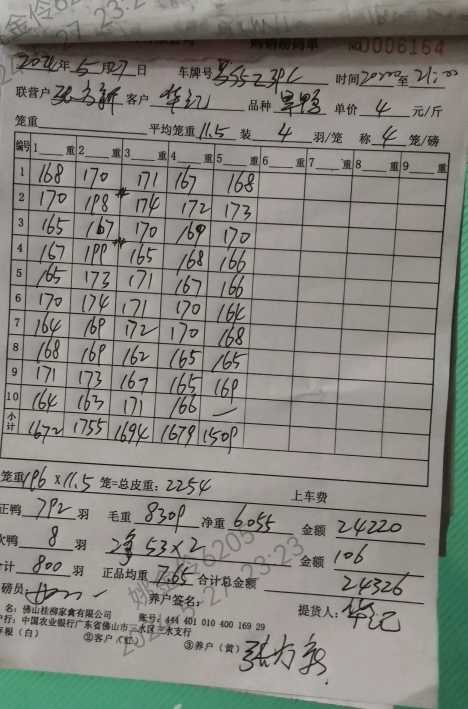 №0006164
2024年5月27日 车牌号 时间2000至21:00
联营户 客户 华记 品种 单价 4 元/斤
笼重 平均笼重11.5 装 4 羽/笼 称 4 笼/磅
编号 1 重 2 重 3 重 4 重 5 重 6 重 7 重 8 重 9 重
1 168 170 171 167 168
2 170 198# 174 172 173
3 165 167 170 169 170
4 167 199# 165 168 166
5 165 173 171 167 166
6 170 174 171 170 164
7 164 169 172 170 168
8 168 169 162 165 165
9 171 173 167 165 169
10 164 163 171 166 —
小计 1672 1755 1694 1679 1509
笼重196×11.5 笼=总皮重:2254
上车费
正鸭 792 羽 毛重 8309 净重 6055 金额 24220
次鸭 8 羽 净 53×2 金额 106
合计 800 羽 正品均重 7.65 合计总金额 24326
磅员: 养户签名: 提货人: 华记
名:佛山桂柳家禽有限公司 账号:444 401 010 400 169 29
户行:中国农业银行广东省佛山市三水区三水支行
存根(白) ②客户(红) ③养户(黄)